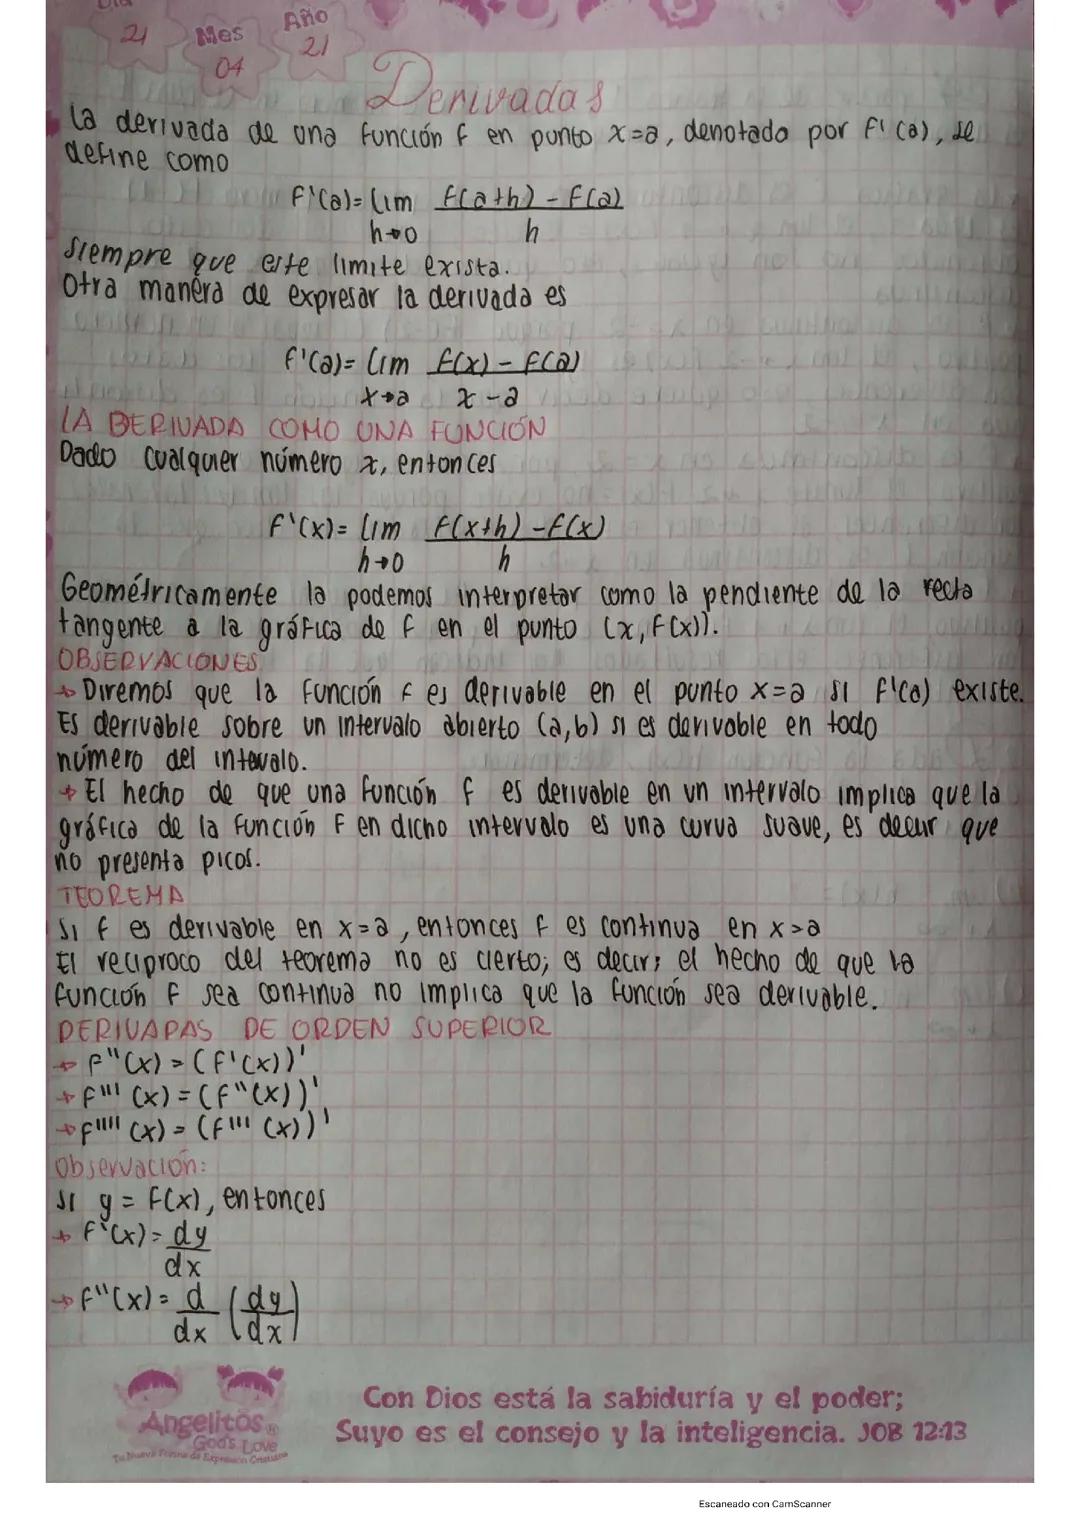 Día
21
Mes
04
Año
21
Derivadas
La derivada de una función f en punto x=a, denotado por f'(a), se
define como
f'(a)= lim f(a+h) - f(a)
h→0 h
Siempre que este limite exista.
Otra manera de expresar la derivada es
f'(a)= lim f(x) - f(a)
x→a x-a
LA DERIVADA COMO UNA FUNCIÓN
Dado cualquier número x, entonces
f'(x)= lim f(x+h) - f(x)
h→0 h
Geométricamente la podemos interpretar como la pendiente de la recta
tangente a la gráfica de f en el punto (x,f(x)).
OBSERVACIONES
→ Diremos que la función f es derivable en el punto x=a si f'(a) existe.
Es derivable sobre un intervalo abierto (a,b) si es derivable en todo
número del intevalo.
→ El hecho de que una función f es derivable en un intervalo implica que la
gráfica de la función F en dicho intervalo es una curva suave, es decir que
no presenta picos.
TEOREMA
Si f es derivable en x=a, entonces f es continua en x=a
El reciproco del teorema no es cierto; es decir; el hecho de que la
función f sea continua no implica que la función sea derivable.
DERIVADAS DE ORDEN SUPERIOR
→ f''(x) = (f'(x))'
→ f'''(x) = (f''(x))'
→ f''''(x) = (f'''(x))'
Observación:
Si y = f(x), entonces
→ f'(x) = dy
dx
→ f''(x) = d (dy)
dx (dx)
Angelitos ®
God's Love
Tu Nueva Forma de Expresión Cristiana
Con Dios está la sabiduría y el poder;
Suyo es el consejo y la inteligencia. JOB 12:13
Escaneado con CamScanner